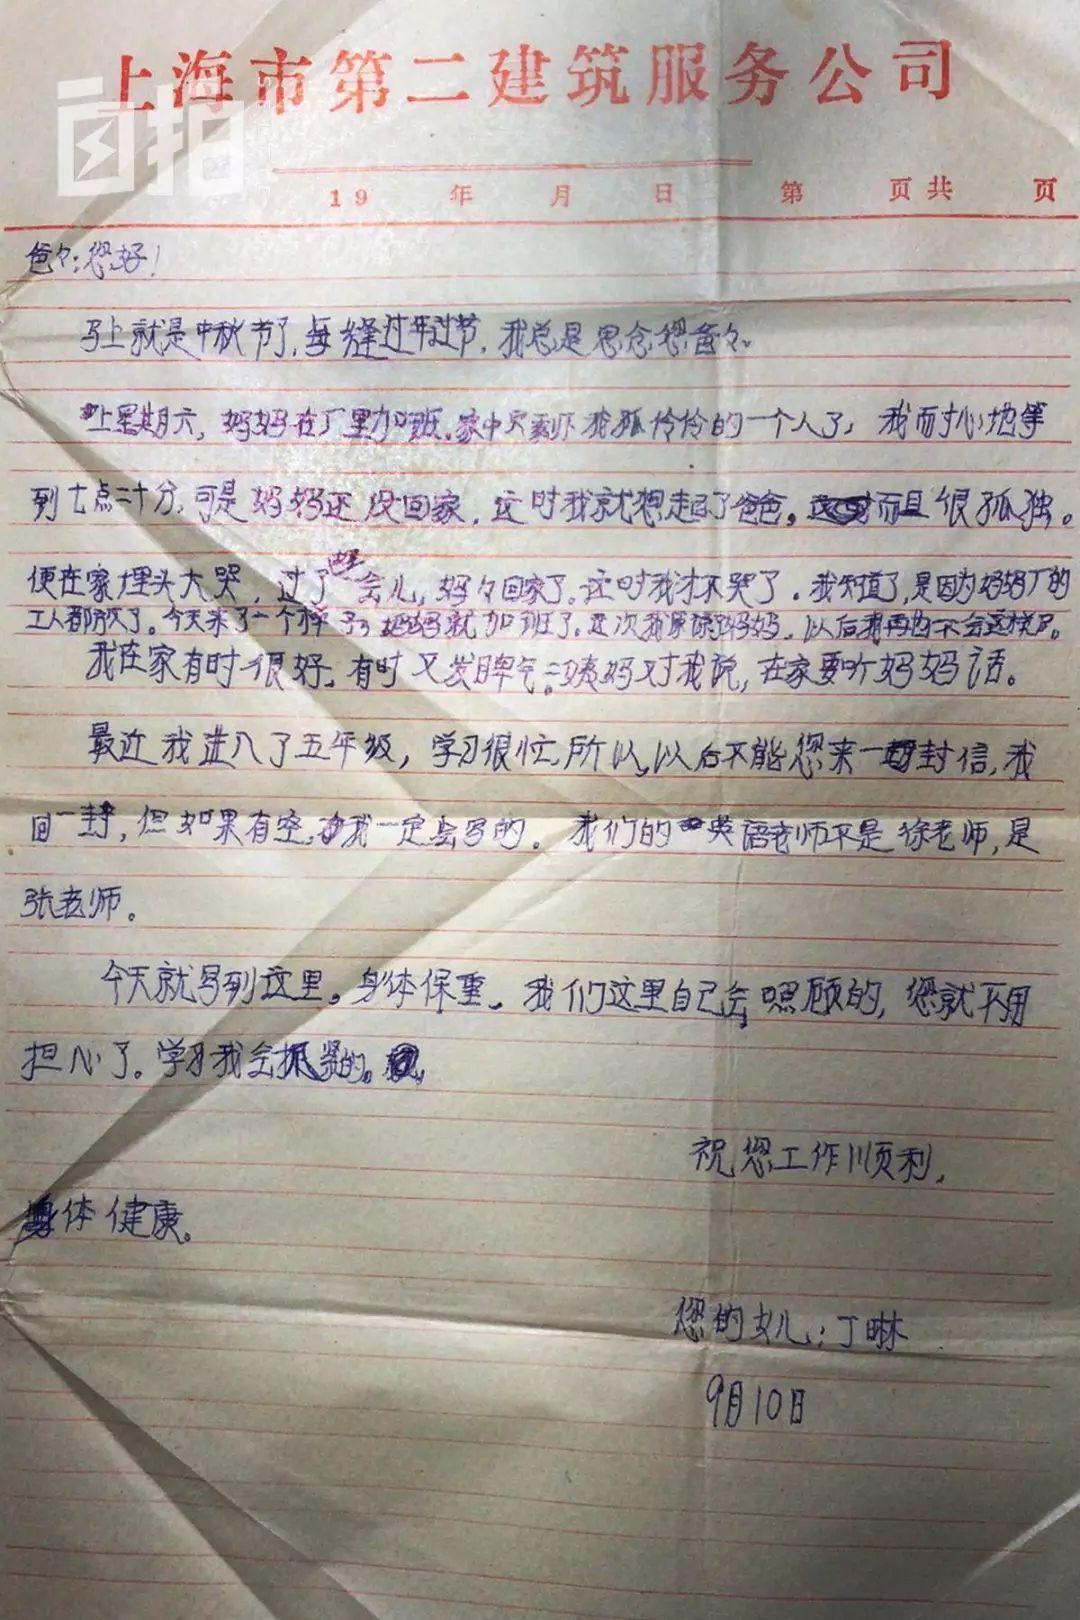 上海市第二建筑服务公司
自拍
19 年 月 日 第 页共 页
爸々:您好!
马上就是中秋节了,每缝过年过节,我总是思念您爸々。
上星期六,妈妈在厂里加班。家中只剩下我孤伶伶的一个人了,我耐心地等
到七点二十分,可是妈妈还没回家,这时我就想起了爸爸。而且很孤独。
便在家埋头大哭,过了好一会儿,妈々回家了。这时我才不哭了。我知道了,是因为妈妈厂的
工人都放了。今天来了一个 妈妈就加班了。这次我 妈妈,以后我再也不会这样了。
我在家有时很好,有时又发脾气。二姨妈对我说,在家要听妈妈话。
最近我进入了五年级,学习很忙,所以,以后不能您来一封信,我
回一封,但如果有空,我一定会写的。我们的英语老师不是徐老师,是
张老师。
今天就写到这里。身体保重。我们这里自己会照顾的,您就不用
担心了。学习我会抓紧的。
祝您工作顺利,
身体健康。
您的女儿:丁琳
9月10日